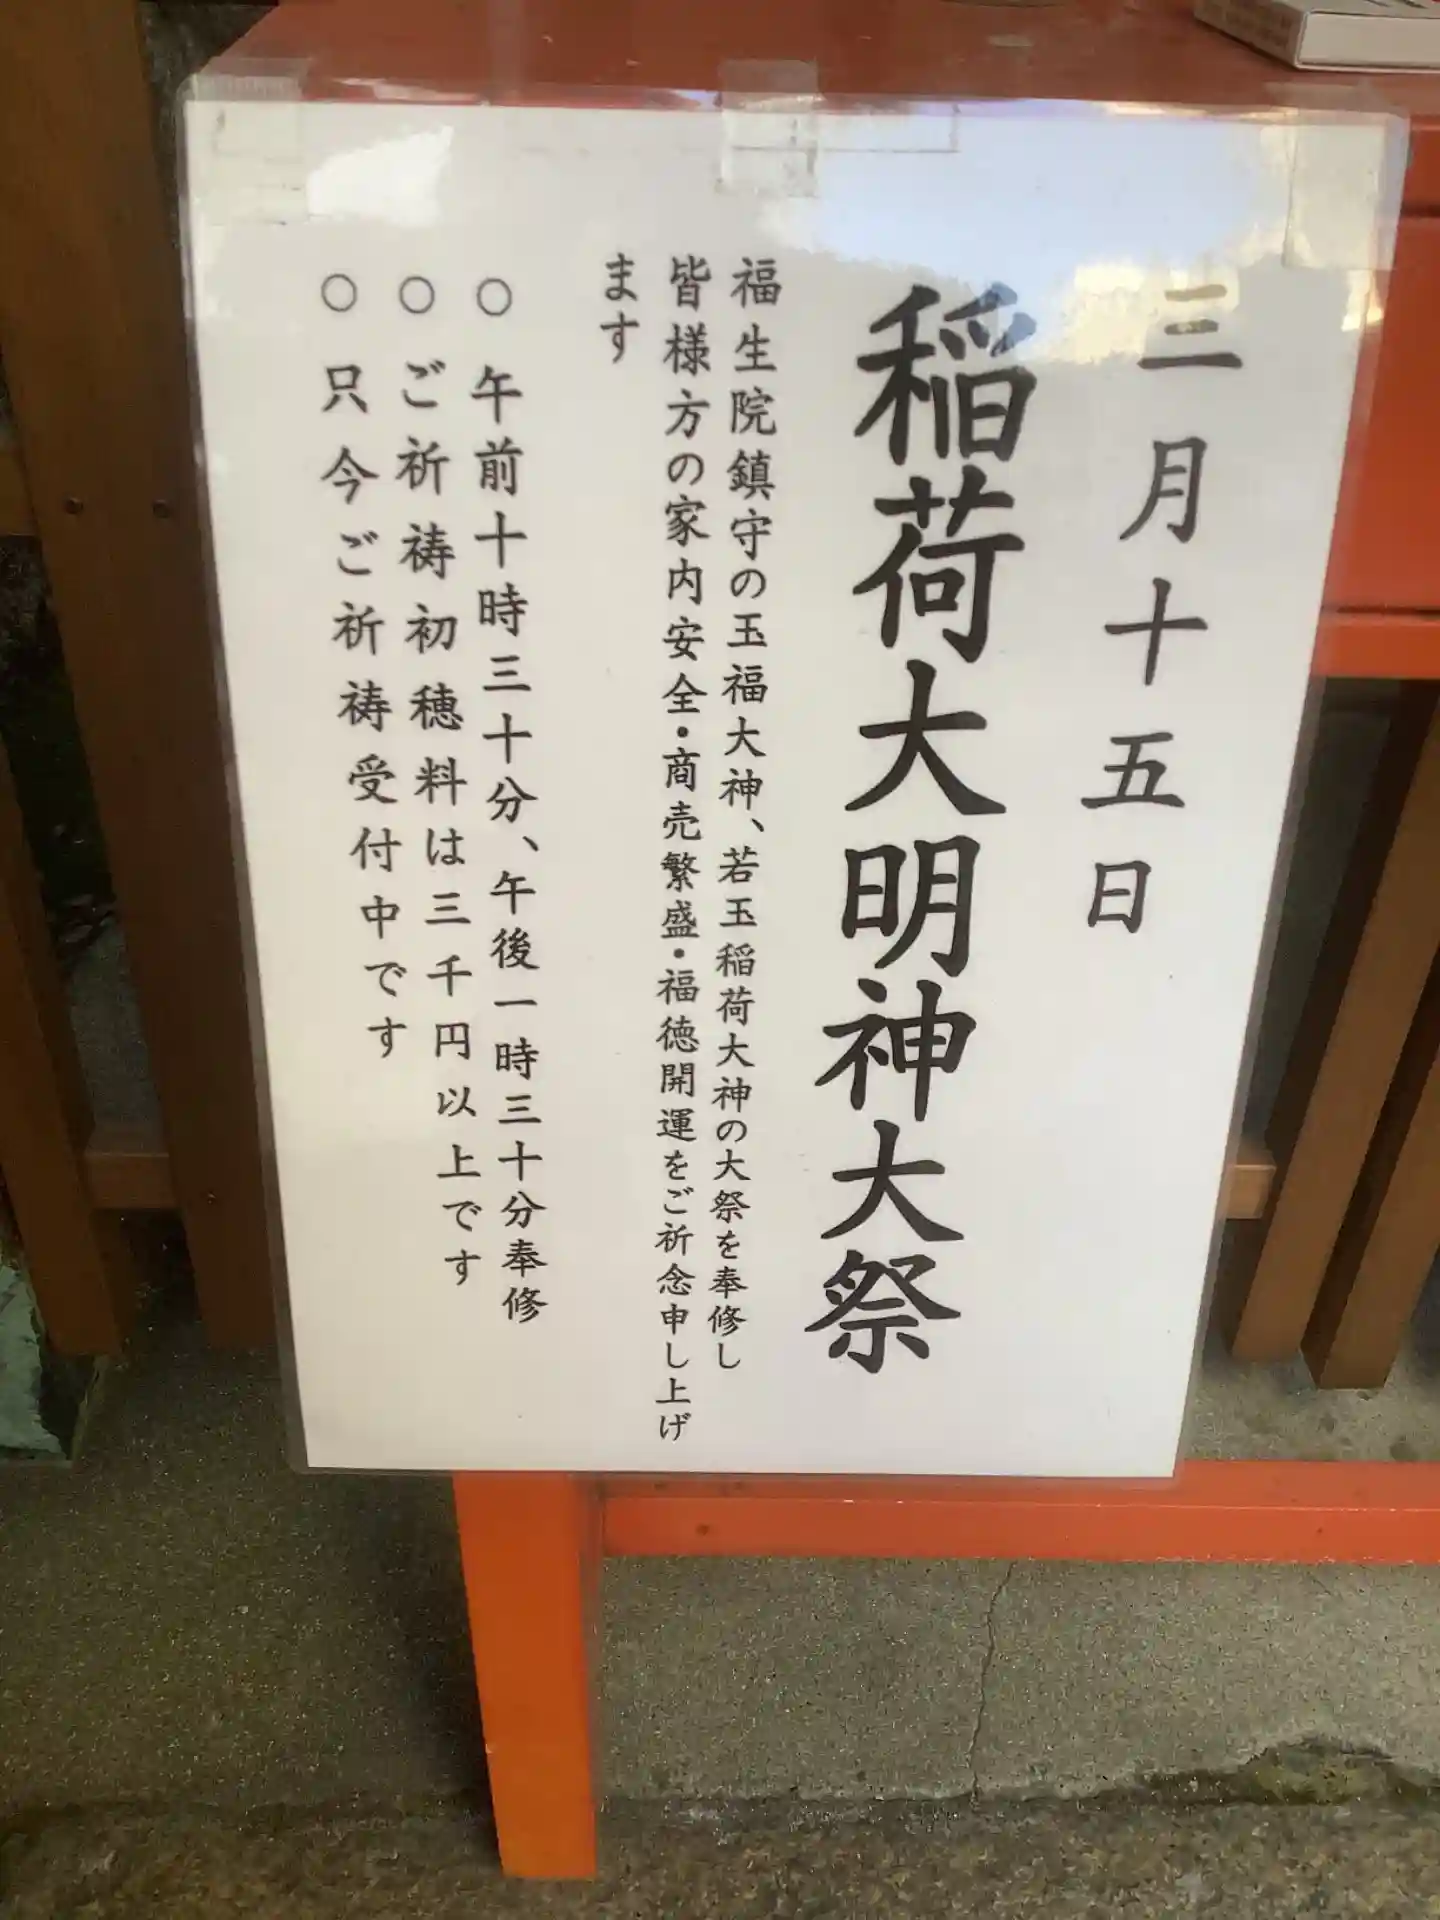 三月十五日
稲荷大明神大祭
福生院鎮守の玉福大神、若玉稲荷大神の大祭を奉修し
皆様方の家内安全・商売繁盛・福徳開運をご祈念申し上げ
ます
○ 午前十時三十分、午後一時三十分奉修
○ ご祈祷初穂料は三千円以上です
○ 只今ご祈祷受付中です